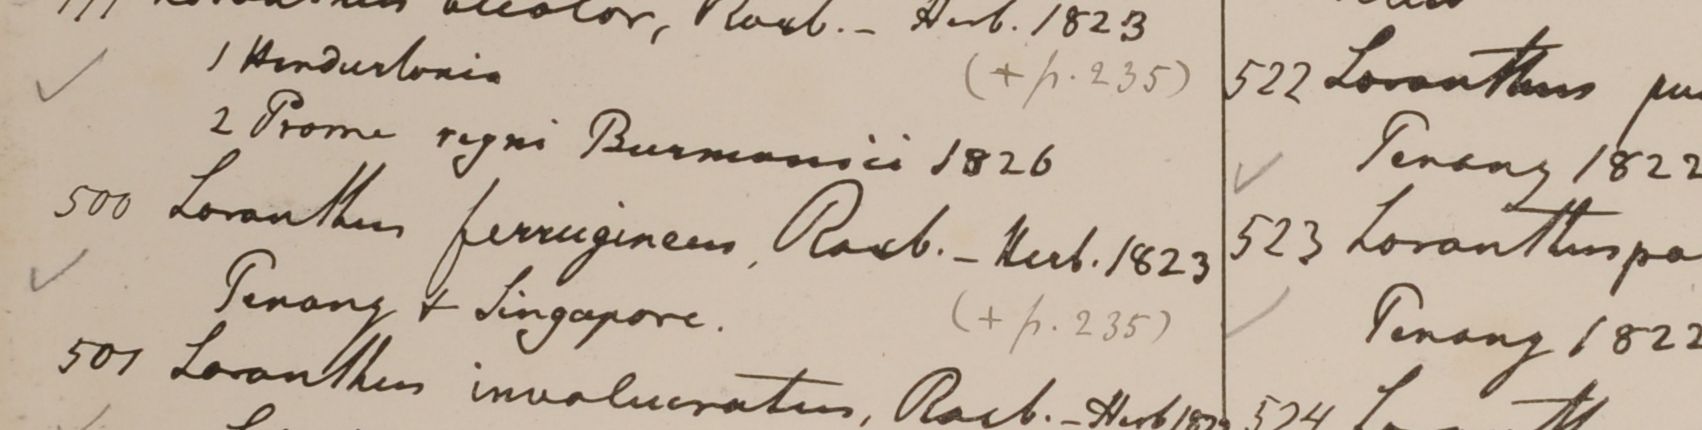 bicolor, Roxb. - Herb. 1823
1 Hindustonia (+ p. 235)
2 Prome regni Burmanici 1826
500 Loranthus ferrugineus, Roxb. - Herb. 1823
Penang & Singapore. (+ p. 235)
501 Loranthus involucratus, Roxb. - Herb 1823
522 Loranthus
Penang 1822
523 Loranthus pa
Penang 1822
524